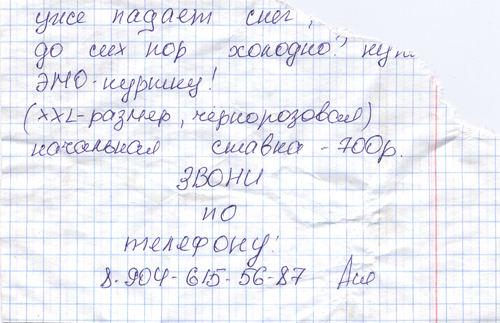 уже падает снег,
до сих пор холодно?
ЭМО-куртку!
(XXL-размер, чернорозовая)
начальная ставка - 700р.
ЗВОНИ
ПО
телефону:
8-904-615-56-87